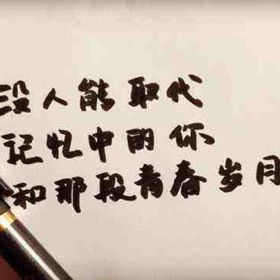 没人能取代
记忆中的你
和那段青春岁月